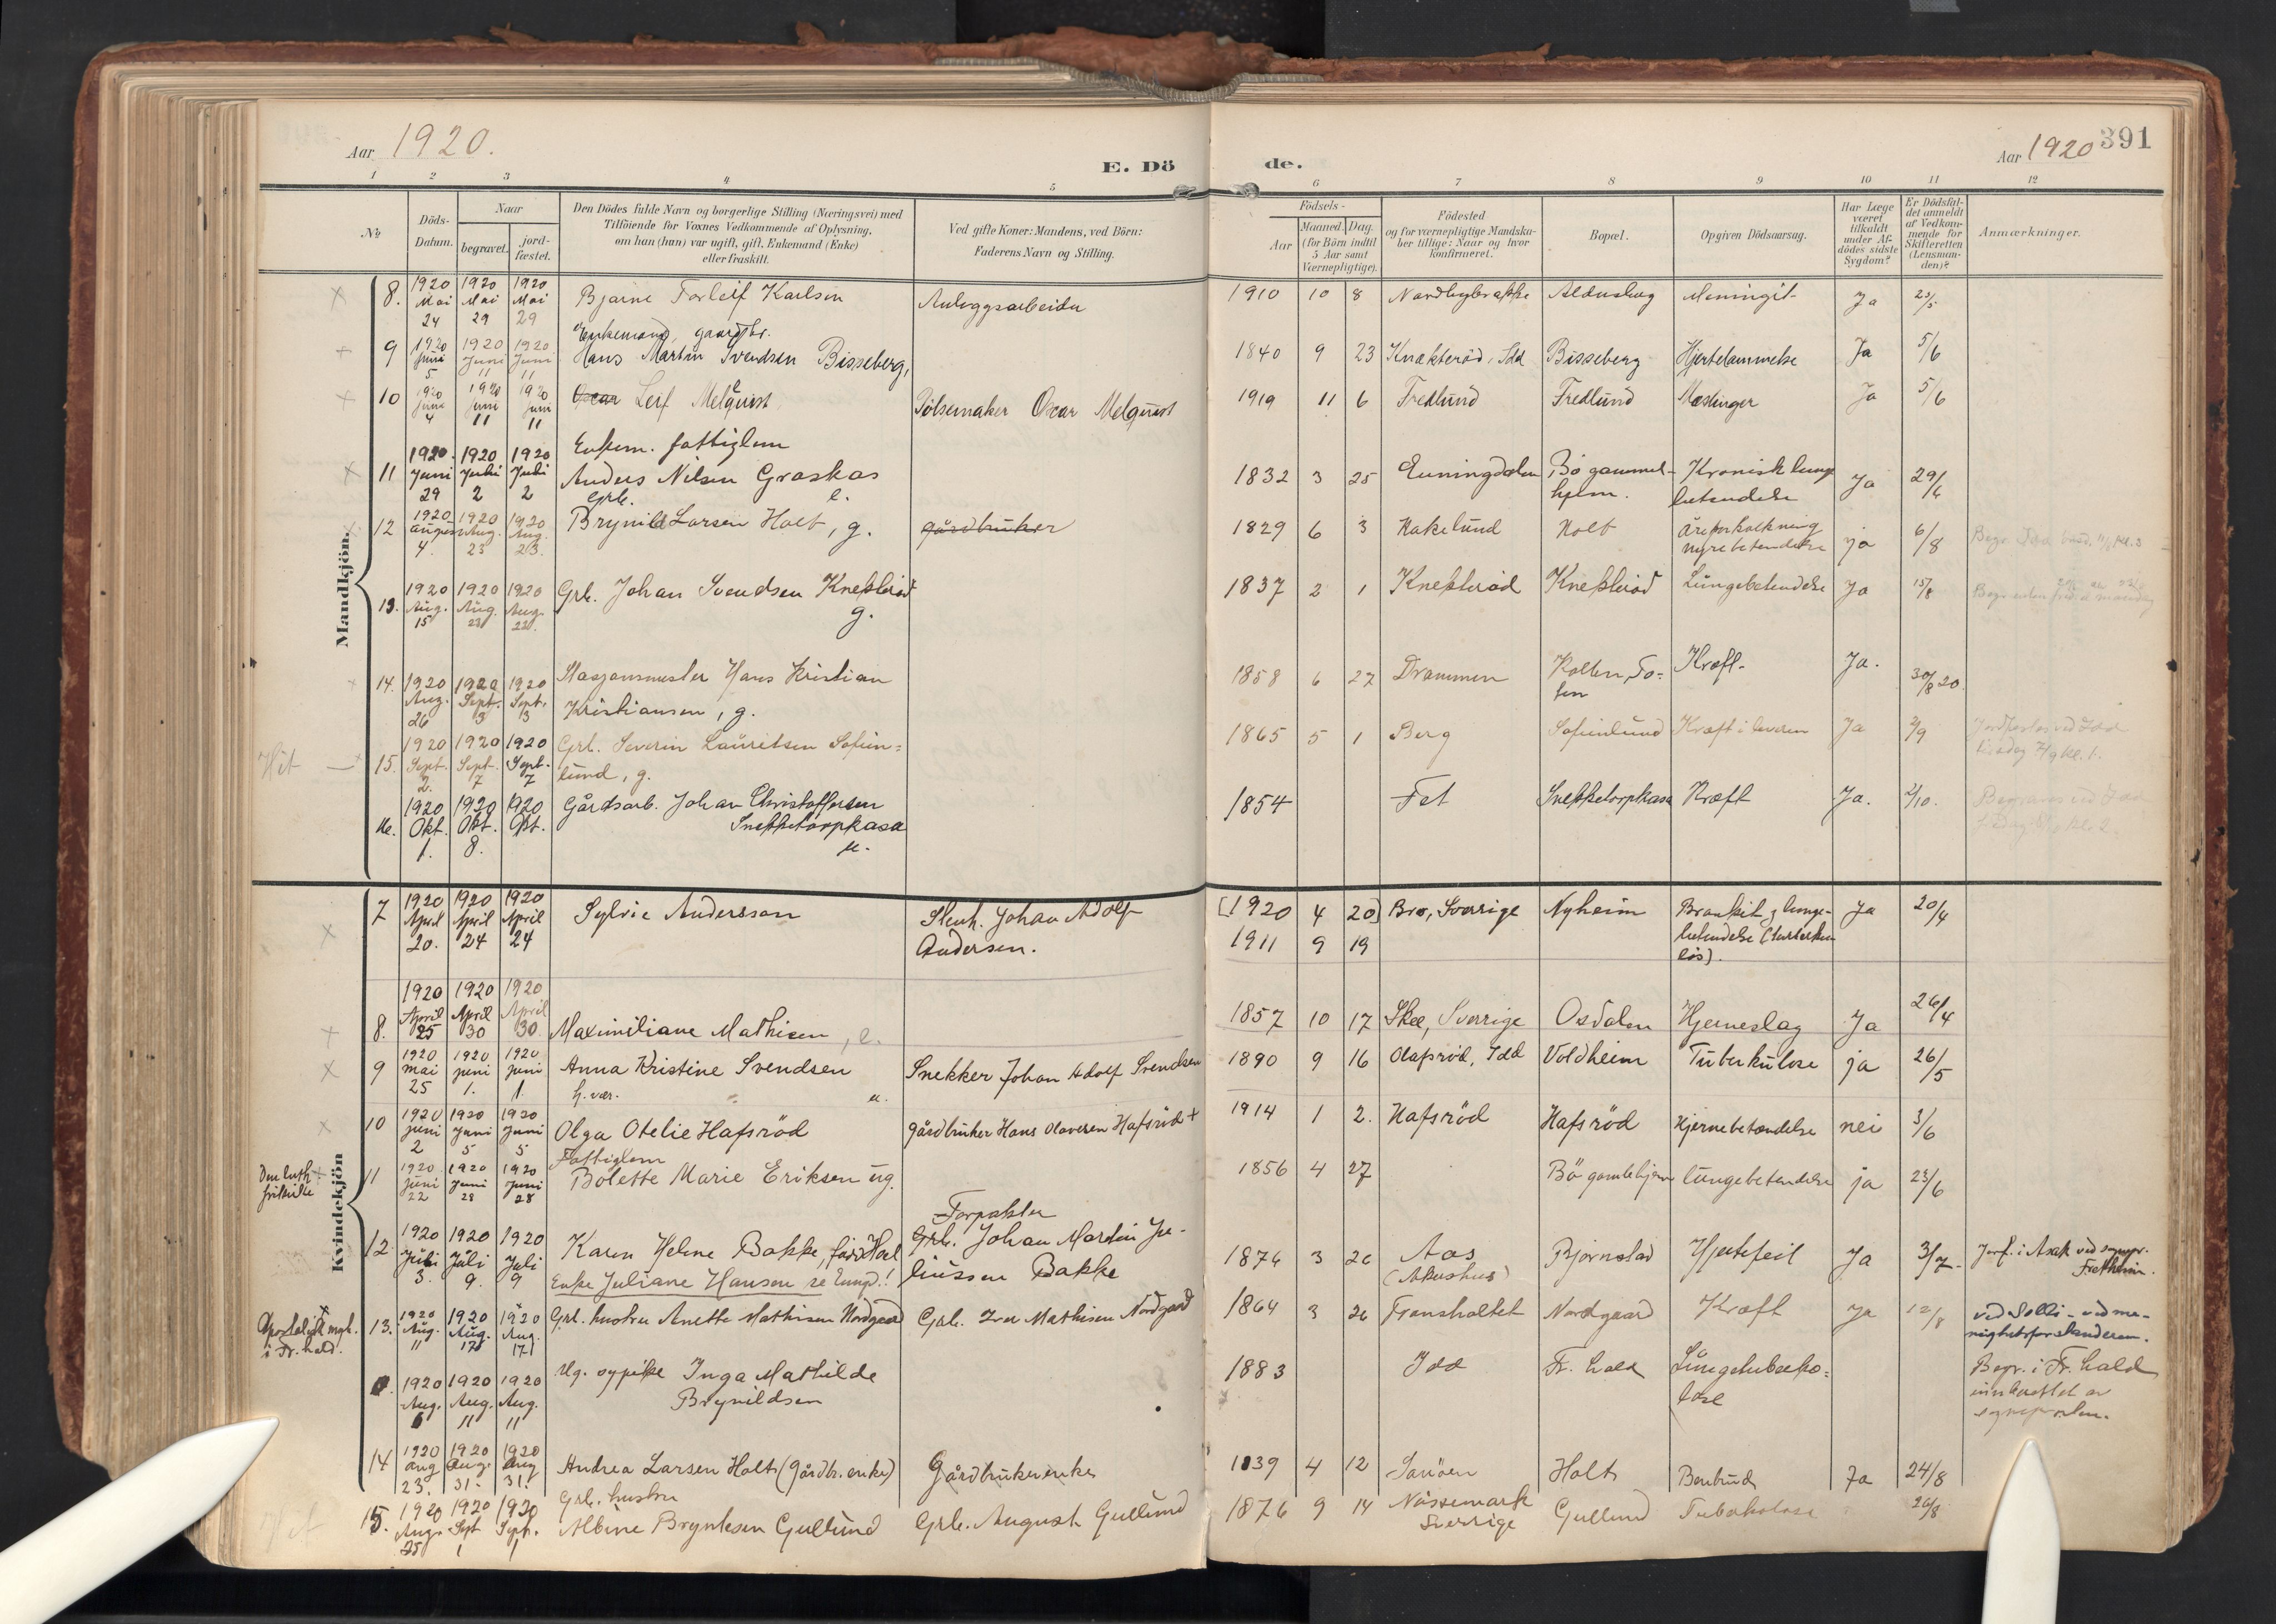 Aar 1920.
E. Dö
de.
Aar 1920
391
1 2 3 4 5 6 7 8 9 10 11 12
No
Döds-Datum.
Naar
begravet.
jord-fæstet.
Den Dödes fulde Navn og borgerlige Stilling (Næringsvei) med
Tilföiende for Voxnes Vedkommende af Oplysning,
om han (hun) var ugift, gift, Enkemand (Enke)
eller fraskilt.
Ved gifte Koner: Mandens, ved Börn:
Faderens Navn og Stilling.
Födsels-
Aar
Maaned. Dag.
(for Börn indtil
5 Aar samt
Værnepligtige).
Födested
og for værnepligtige Mandska-
ber tillige: Naar og hvor
konfirmeret.
Bopæl.
Opgiven Dödsaarsag.
Har Læge
været
tilkaldt
under Af-
dödes sidste
Sygdom?
Er Dödsfal-
det anmeldt
af Vedkom-
mende for
Skifteretten
(Lensman-
den)?
Anmærkninger.
Mandkjön.
8. 1920 Mai 24 1920 Mai 29 1920 Mai 29 Bjarne Torleif Karlsen Anleggsarbeider 1910 10 8 Meningit Ja 25/5
Enkemand, gaardbr.
9 1920 Juni 5 1920 Juni 11 1920 Juni 11 Hans Martin Svendsen Bisseberg, 1840 9 23 Knækteröd, Idd Bisseberg Hjertelammelse Ja 5/6
10 1920 juni 4 1920 juni 11 1920 juni 11 Oscar Leif Melquist Pölsemaker Oscar Melquist 1919 11 6 Fredlund Fredlund Mæslinger Ja 5/6
Enkem. fattiglem
11 1920 Juni 29 1920 Juli 2 1920 Juli 2 Anders Nilsen Graskas e. 1832 3 25 Enningdalen Bö gammel-
hjem. Kronisk lunge
betendelse Ja 29/6
Grb.
12 1920 august 4. 1920 Aug. 23 1920 Aug. 23. Brynild Larsen Holt, g. gårdbruker 1829 6 3 Hakelund Holt Åreforkalkning
nyrebetendelse ja 6/8
13. 1920 Aug. 15 1920 Aug. 23 1920 Aug. 23. Grb. Johan Svendsen Knekteröd
g. 1837 2 1 Knekteröd Knekteröd Lungebetendelse Ja 15/8
14. 1920 Aug. 26 1920 Sept. 3 1920 Sept. 3 Stasjonsmester Hans Kristian
Kristiansen, g. 1858 6 27 Drammen Kolbu, To-
ten Kræft. Ja. 30/8 20.
Hit
15. 1920 Sept. 2. 1920 Sept. 7 1920 Sept. 7 Grb. Severin Lauritsen Sofien=
lund, g. 1865 5 1 Berg Sofienlund Kræft i leveren Ja 2/9 Jordfestes ved Idd
tirsdag 7/9 kl. 1.
16. 1920 Okt. 1. 1920 Okt. 8. 1920 Okt. Gårdsarb. Johan Christoffersen
Snekketorpkasa
u. 1854 Fet Snekketorpkasa Kræft Ja. 2/10. Begraves ved Idd
Kvindekjön
7 1920 April 20. 1920 April 24 1920 April 24 Sylvie Andersson Stenh. Johan Adolf
Andersen. [1920 4 20]
1911 9 19 Bro, Sverrige Nyheim Bronkit, lunge-
betendelse (tuberku
lös). Ja 20/4
8. 1920 April 25 1920 April 30 1920 April 30 Maximiliane Mathisen, e. 1857 10 17 Skee, Sverrige Osdalen Hjerneslag Ja 26/4
9 1920 mai 25 1920 juni 1. 1920 juni 1. Anna Kristine Svendsen
h. vær. u. Snekker Johan Adolf Svendsen 1890 9 16 Olafsröd, Idd Voldheim Tuberkulose ja 26/5
10 1920 juni 2 1920 juni 5 1920 juni 5 Olga Otelie Hafsröd gårdbruker Hans Olavesen Hafsröd + 1914 1 2. Hafsröd Hafsröd Hjernebetændelse nei 3/6
Den luth.
frikirke
Fattiglem
11 1920 juni 22 1920 juni 28 1920 juni 28 Bolette Marie Eriksen ug. 1856 4 27 Bö gamlehjem lungebetendelse ja 23/6
12. 1920 Juli 3. 1920 Juli 9. 1920 Juli 9 Karen Helene Bakke, född Hoel
Enke Juliane Hansen se Enngd.! Forpakter
Grb. Johan Martin Ju-
liussen Bakke 1876 3 26 Aas
(Akershus) Bjørnstad Hjertefeil Ja 3/7 Jordf. i Asak ved sognepr.
Fretheim.
Apostolisk mgh.
i Fr. hald.
13. 1920 Aug. 11 1920 Aug. 17 1920 Aug. 17 Grb. hustru Anette Mathisen Nordgaard Grb. Iver Mathisen Nordgaard 1864 3 26 Nordgaard Kræft Ja 12/8 ved Solli - ved me-
nighetsforstanderen.
0. 1920 Aug. 6 1920 Aug. 11 1920 Aug. 11 Ug. sypike Inga Mathilde
Brynildsen 1883 Idd Fr. hald Lungetuberku=
lose Begr. i Fr. hald
innberettet av
sogneprosten.
14 1920 aug 23. 1920 aug. 31. 1920 aug 31. Andrea Larsen Holt (gårdbr. enke) Gårdbrukerenke 1839 4 12 Holt Benbrud Ja 24/8
Grb. hustru
15. 1920 Aug. 25 1920 Sept 1 1920 Sept. 1 Albine Bryntesen Gullund Grb. August Gullund 1876 9 14 Nössemark
Sverrige Gullund Tuberkulose 26/8
Hit